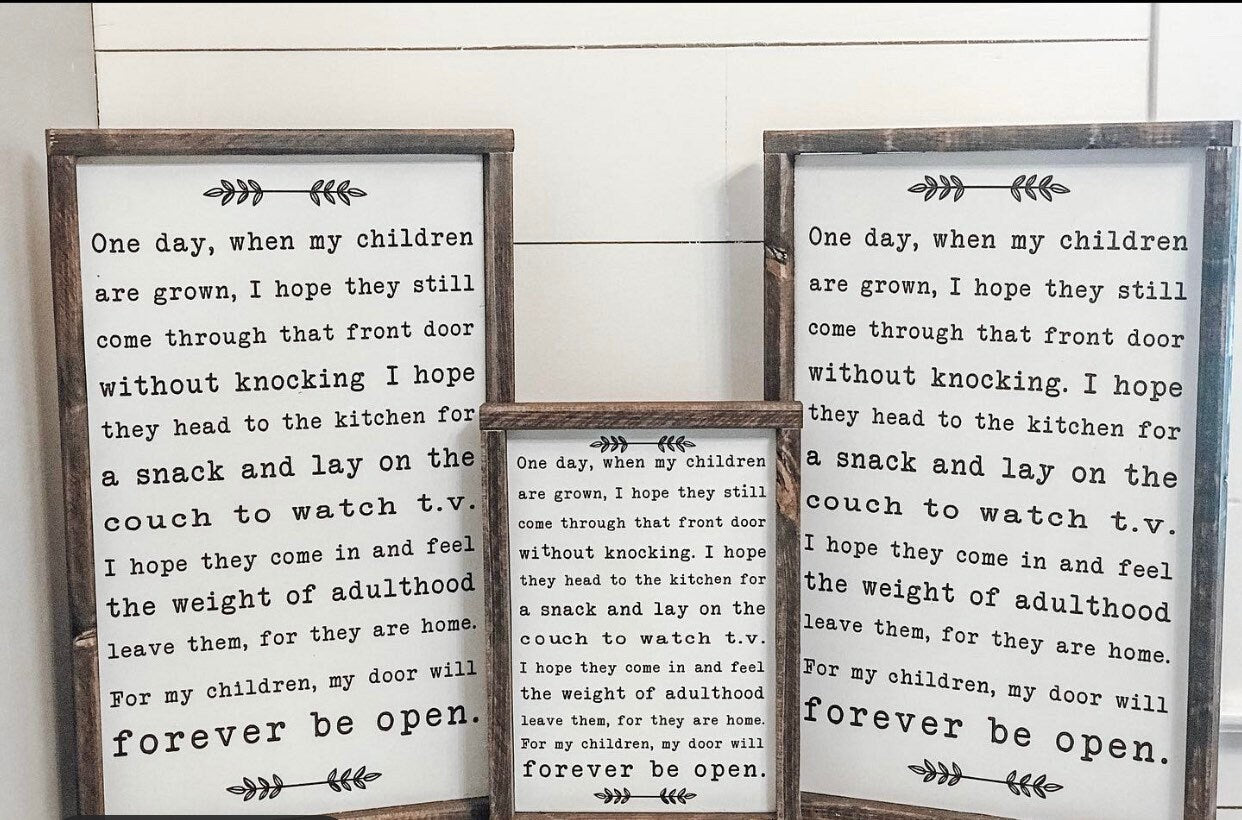 One day, when my children
are grown, I hope they still
come through that front door
without knocking I hope
they head to the kitchen for
a snack and lay on the
couch to watch t.v.
I hope they come in and feel
the weight of adulthood
leave them, for they are home.
For my children, my door will
forever be open.
One day, when my children
are grown, I hope they still
come through that front door
without knocking. I hope
they head to the kitchen for
a snack and lay on the
couch to watch t.v.
I hope they come in and feel
the weight of adulthood
leave them, for they are home.
For my children, my door will
forever be open.
One day, when my children
are grown, I hope they still
come through that front door
without knocking. I hope
they head to the kitchen for
a snack and lay on the
couch to watch t.v.
I hope they come in and feel
the weight of adulthood
leave them, for they are home.
For my children, my door will
forever be open.